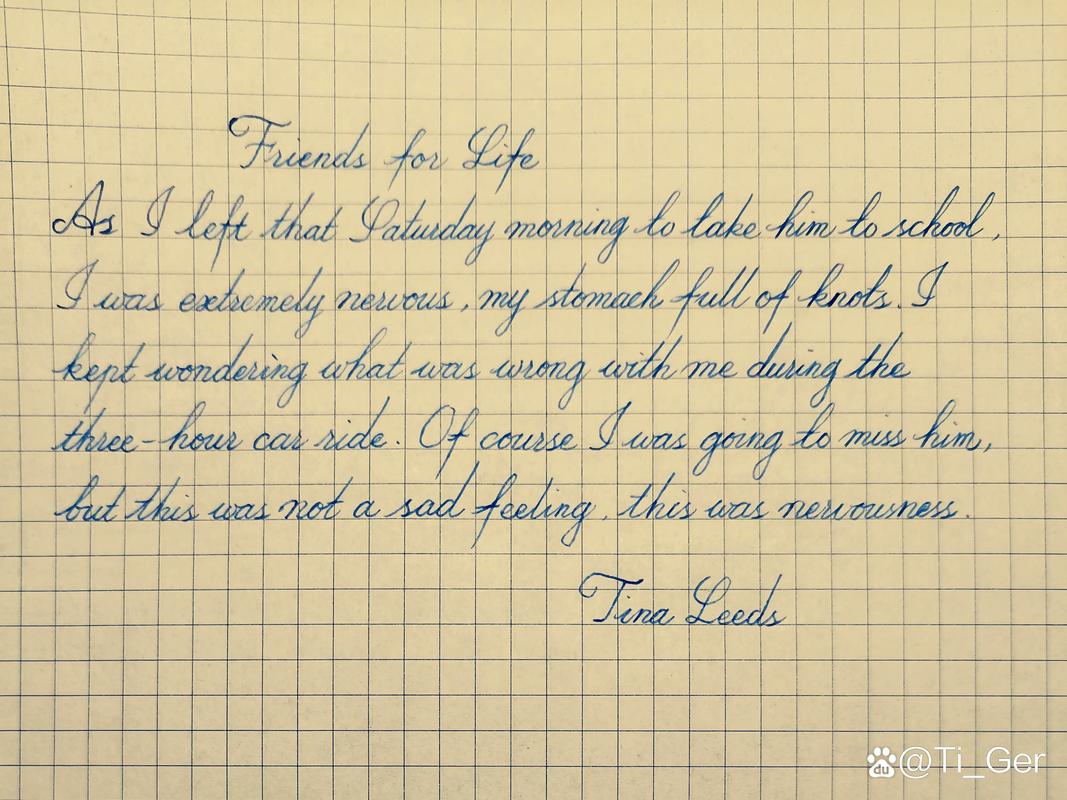 Friends for Life
As I left that Saturday morning to take him to school,
I was extremely nervous, my stomach full of knots. I
kept wondering what was wrong with me during the
three-hour car ride. Of course I was going to miss him,
but this was not a sad feeling, this was nervousness.
Tina Leeds
du @Ti_Ger